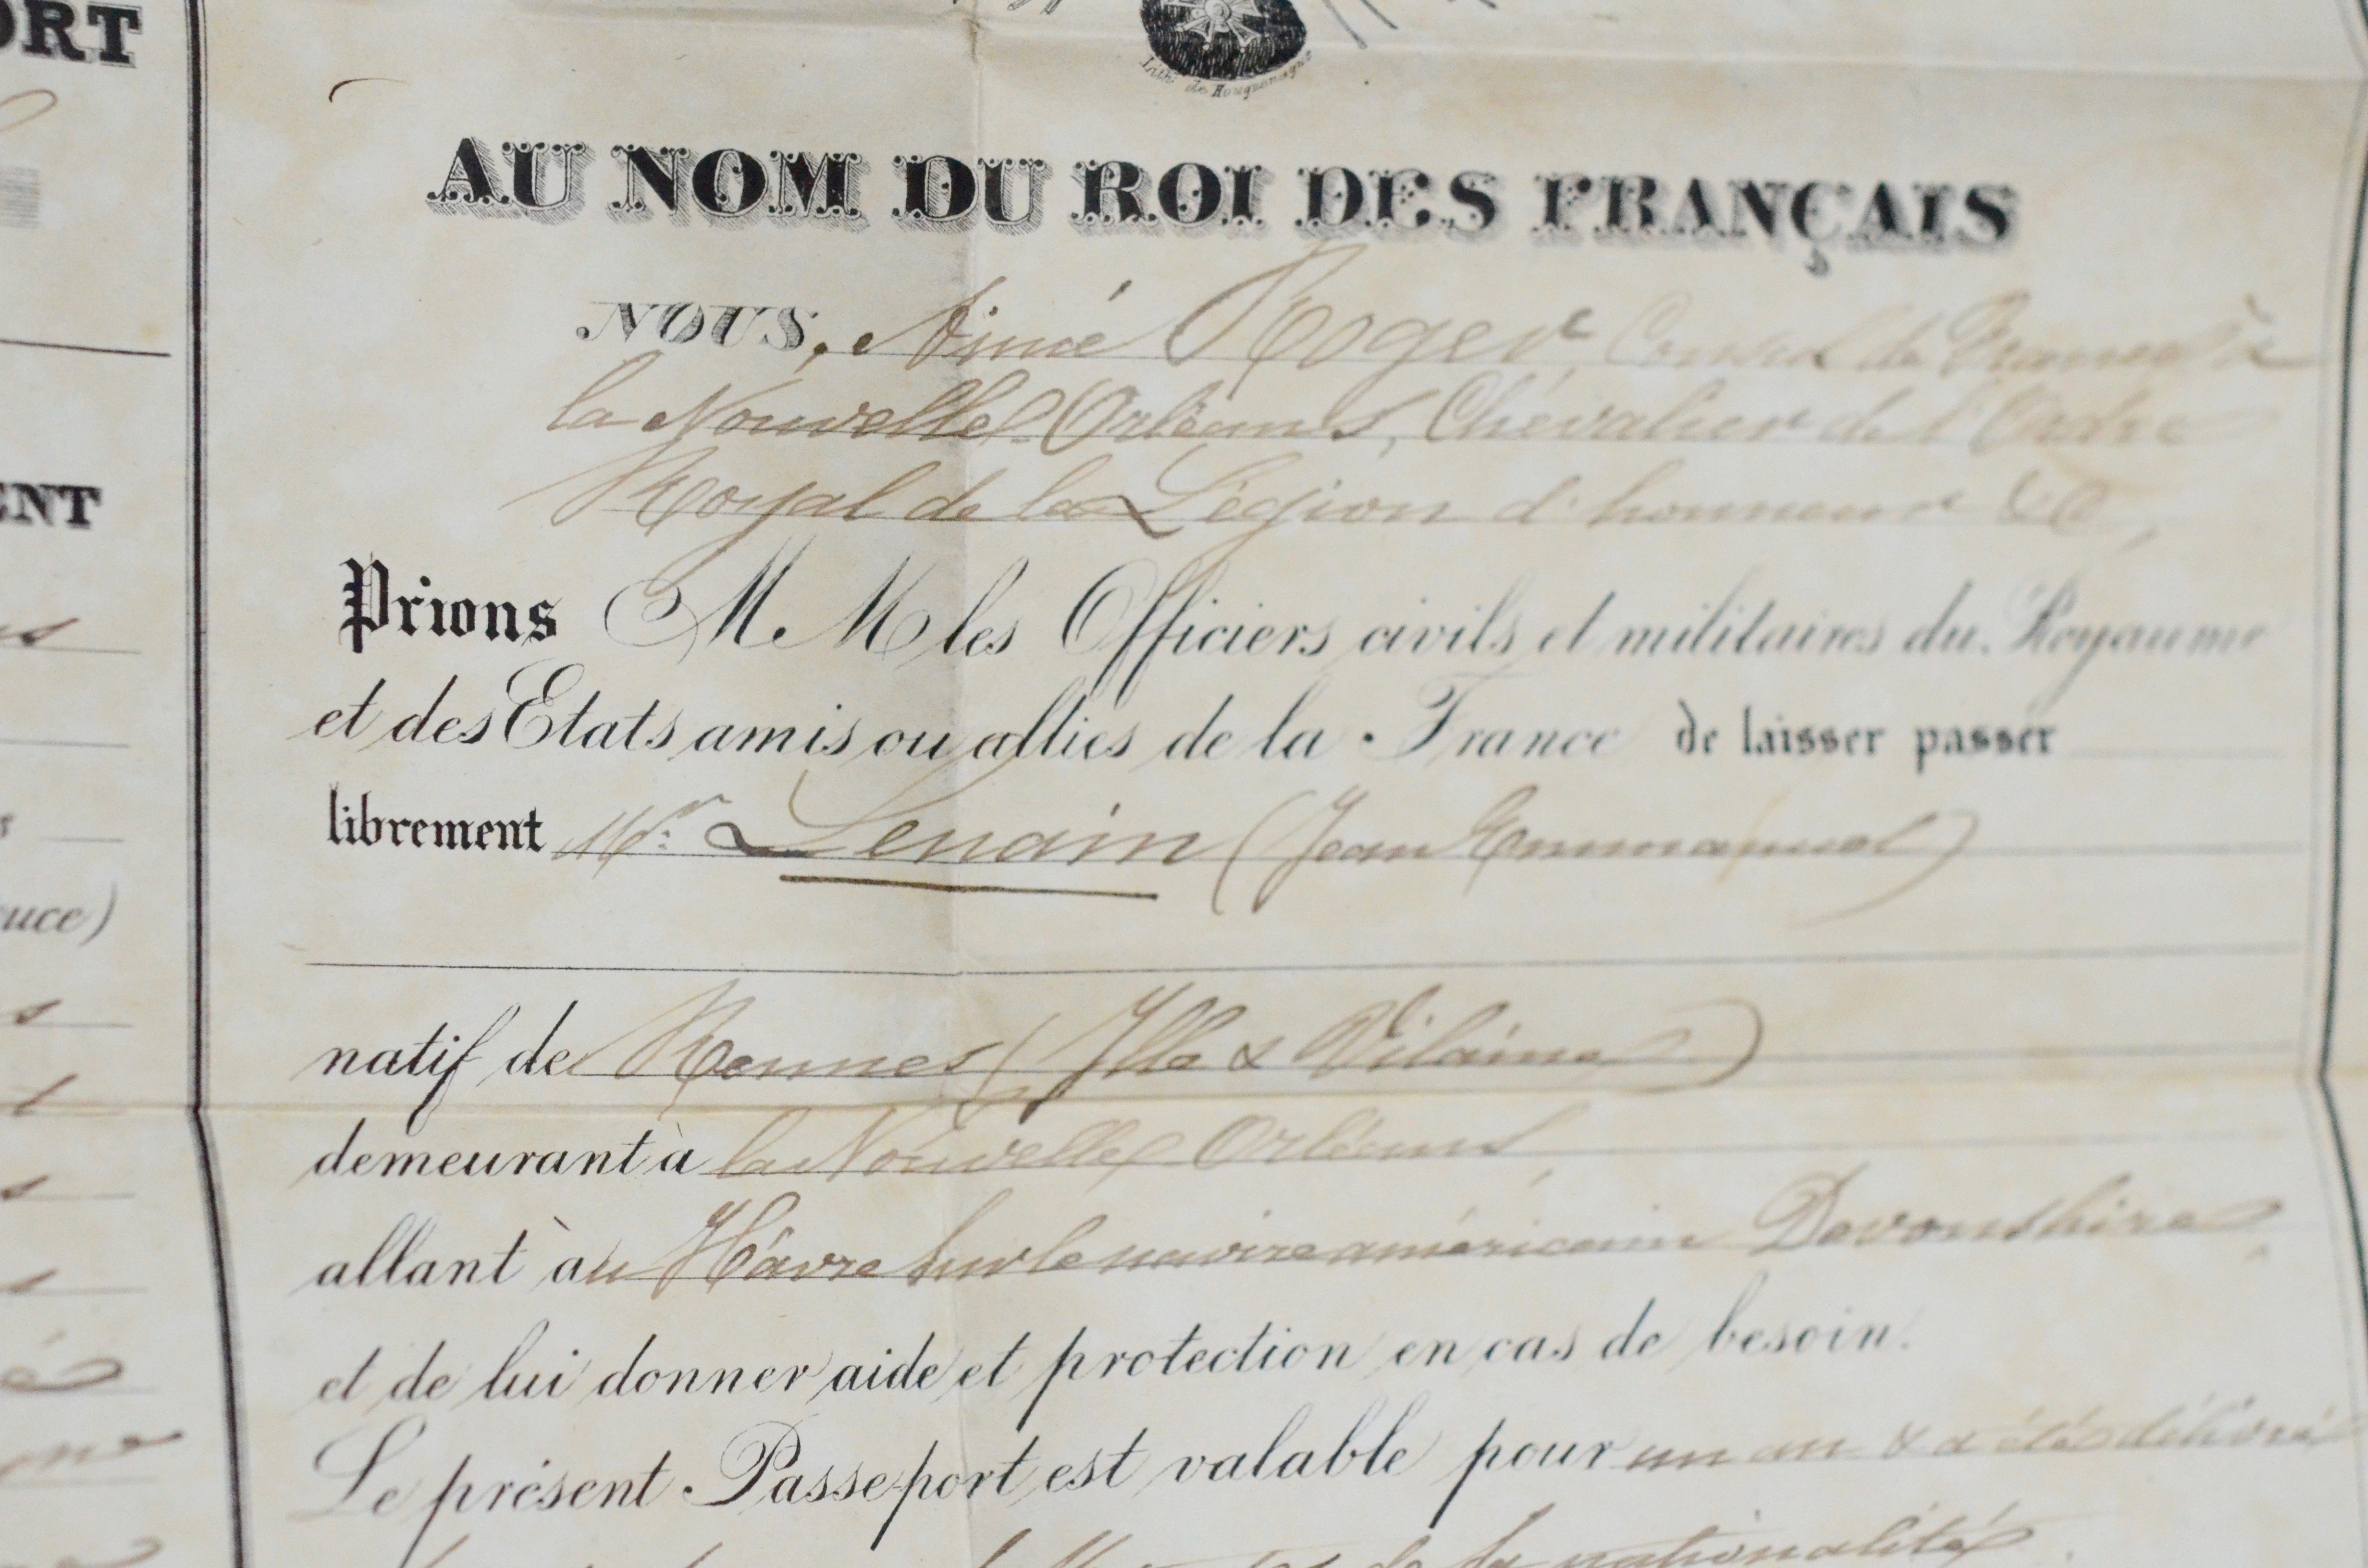 ORT
Lith. de
AU NOM DU ROI DES FRANÇAIS
NOUS, Aimé Roger, Consul de France à
la Nouvelle Orléans, Chevalier de l'Ordre
Royal de la Légion d'honneur &c,
Prions MM les Officiers civils et militaires du Royaume
et des Etats amis ou alliés de la France de laisser passer
librement Mr. Lenain (Jean Emmanuel)
natif de Rennes (Ille & Vilaine)
demeurant à la Nouvelle Orléans,
allant à au Hâvre sur le navire américain Devonshire
et de lui donner aide et protection en cas de besoin.
Le présent Passeport est valable pour un an & a été délivré
de sa nationalité
ENT
uce)